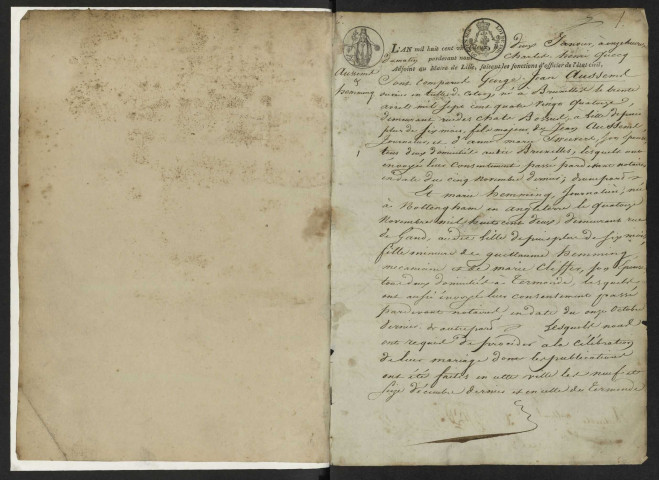 L'AN mil huit cent
deux Janvier, à onze heures
pardevant nous Charles henri
Adjoint au Maire de Lille, faisant les fonctions d'officier de l'état civil,
Aussenel
&
hemming
Sont comparus George Jean Aussenel
né à Bruxelles le trente
mil sept cent quatre vingt quatorze,
demeurant rue des à Lille depuis
plus de six mois, fils majeur de Jean Aussenel
Journalier, et d'anne marie son épouse
tous deux domiciliés au dit Bruxelles, lesquels ont
envoyé leur consentement passé pardevant notaire
en date du cinq novembre dernier, d'une part
Et marie hemming, Journalière, née
à Nottingham en angleterre le quatorze
novembre mil huit cent deux, demeurant rue
de Gand, audit Lille depuis plus de six mois,
fille mineure de guillaume hemming
mécanicien et de marie son épouse
tous deux domiciliés à Termonde, lesquels
ont aussi envoyé leur consentement passé
pardevant notaire en date du onze octobre
dernier, d'autre part Lesquels nous
ont requis de procéder à la célébration
de leur mariage dont les publications
ont été faites en cette ville les neuf et
seize décembre dernier et en celle de Termonde